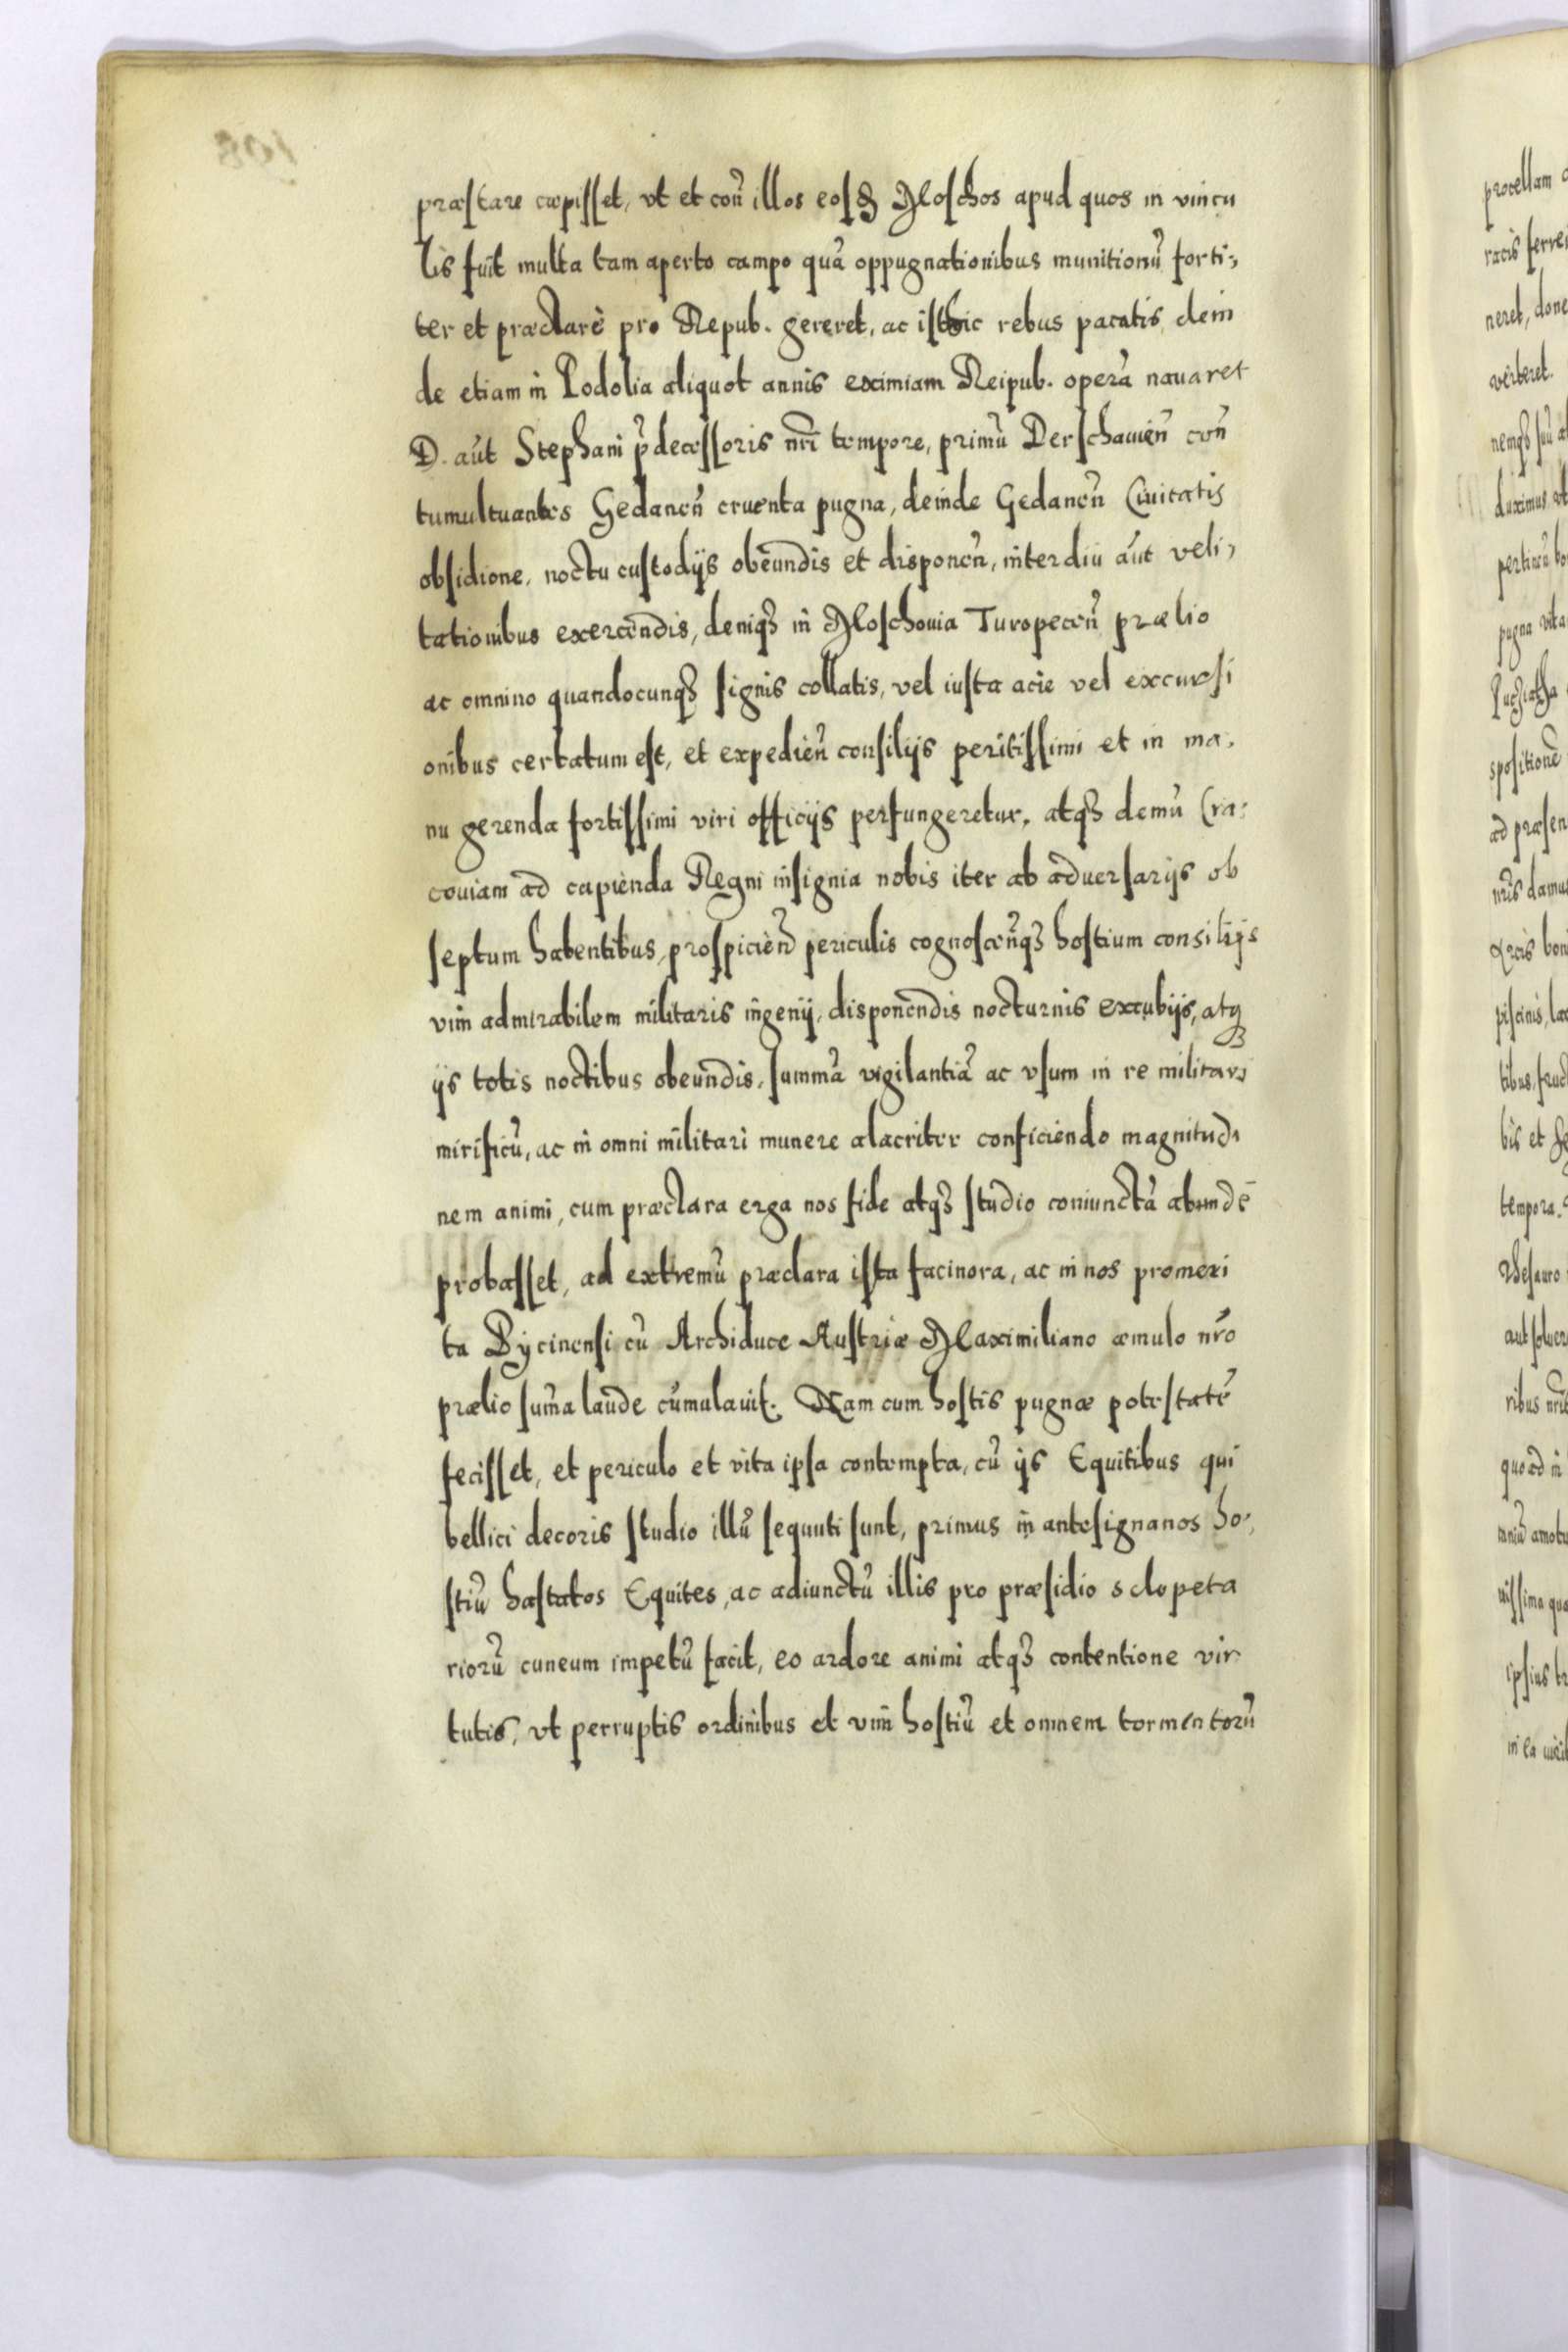 præstare cœpisset, vt et con̄ illos eosq3 Moschos apud quos in vincu
lis fuit multa tam aperto campo quā oppugnationibus munitionū forti,
ter et præclarè pro Repub. gereret, ac isthic rebus pacatis, dein
de etiam in Podolia aliquot annis eximiam Reipub. operā nauaret
D. aūt Stephani p̄decessoris nr̄i tempore, primū Derschauien̄ con̄
tumultuantes Gedanen̄ cruenta pugna, deinde Gedanen̄ Ciuitatis
obsidione, noctu custodijs obeundis et disponen̄, interdiu aūt veli,
tationibus exercendis, deniq3 in Moschouia Turopecen̄ prælio
ac omnino quandocunq3 signis collatis, vel iusta acie vel excursi
onibus certatum est, et expedien̄ consilijs peritissimi et in ma,
nu gerenda fortissimi viri officijs perfungeretur, atq3 demū Cra,
couiam ad capienda Regni insignia nobis iter ab aduersarijs ob
septum habentibus, prospicien̄ periculis cognoscen̄q3 hostium consilijs
vim admirabilem militaris ingenij, disponendis nocturnis excubijs, atq3
ijs totis noctibus obeundis, summā vigilantiā ac vsum in re militari
mirificū, ac in omni militari munere alacriter conficiendo magnitudi
nem animi, cum præclara erga nos fide atq3 studio coniunctā abundē
probasset, ad extremū præclara ista facinora, ac in nos promeri
ta Bycinensi cū Archiduce Austriæ Maximiliano æmulo nr̄o
prælio sum̄a laude cumulauit. Nam cum hostis pugnæ potestatē
fecisset, et periculo et vita ipsa contempta, cū ijs Equitibus qui
bellici decoris studio illū sequuti sunt, primus in antesignanos ho,
stiū hastatos Equites, ac adiunctū illis pro præsidio sclopeta
riorū cuneum impetū facit, eo ardore animi atq3 contentione vir
tutis, vt perruptis ordinibus et vim hostiū et omnem tormentorū